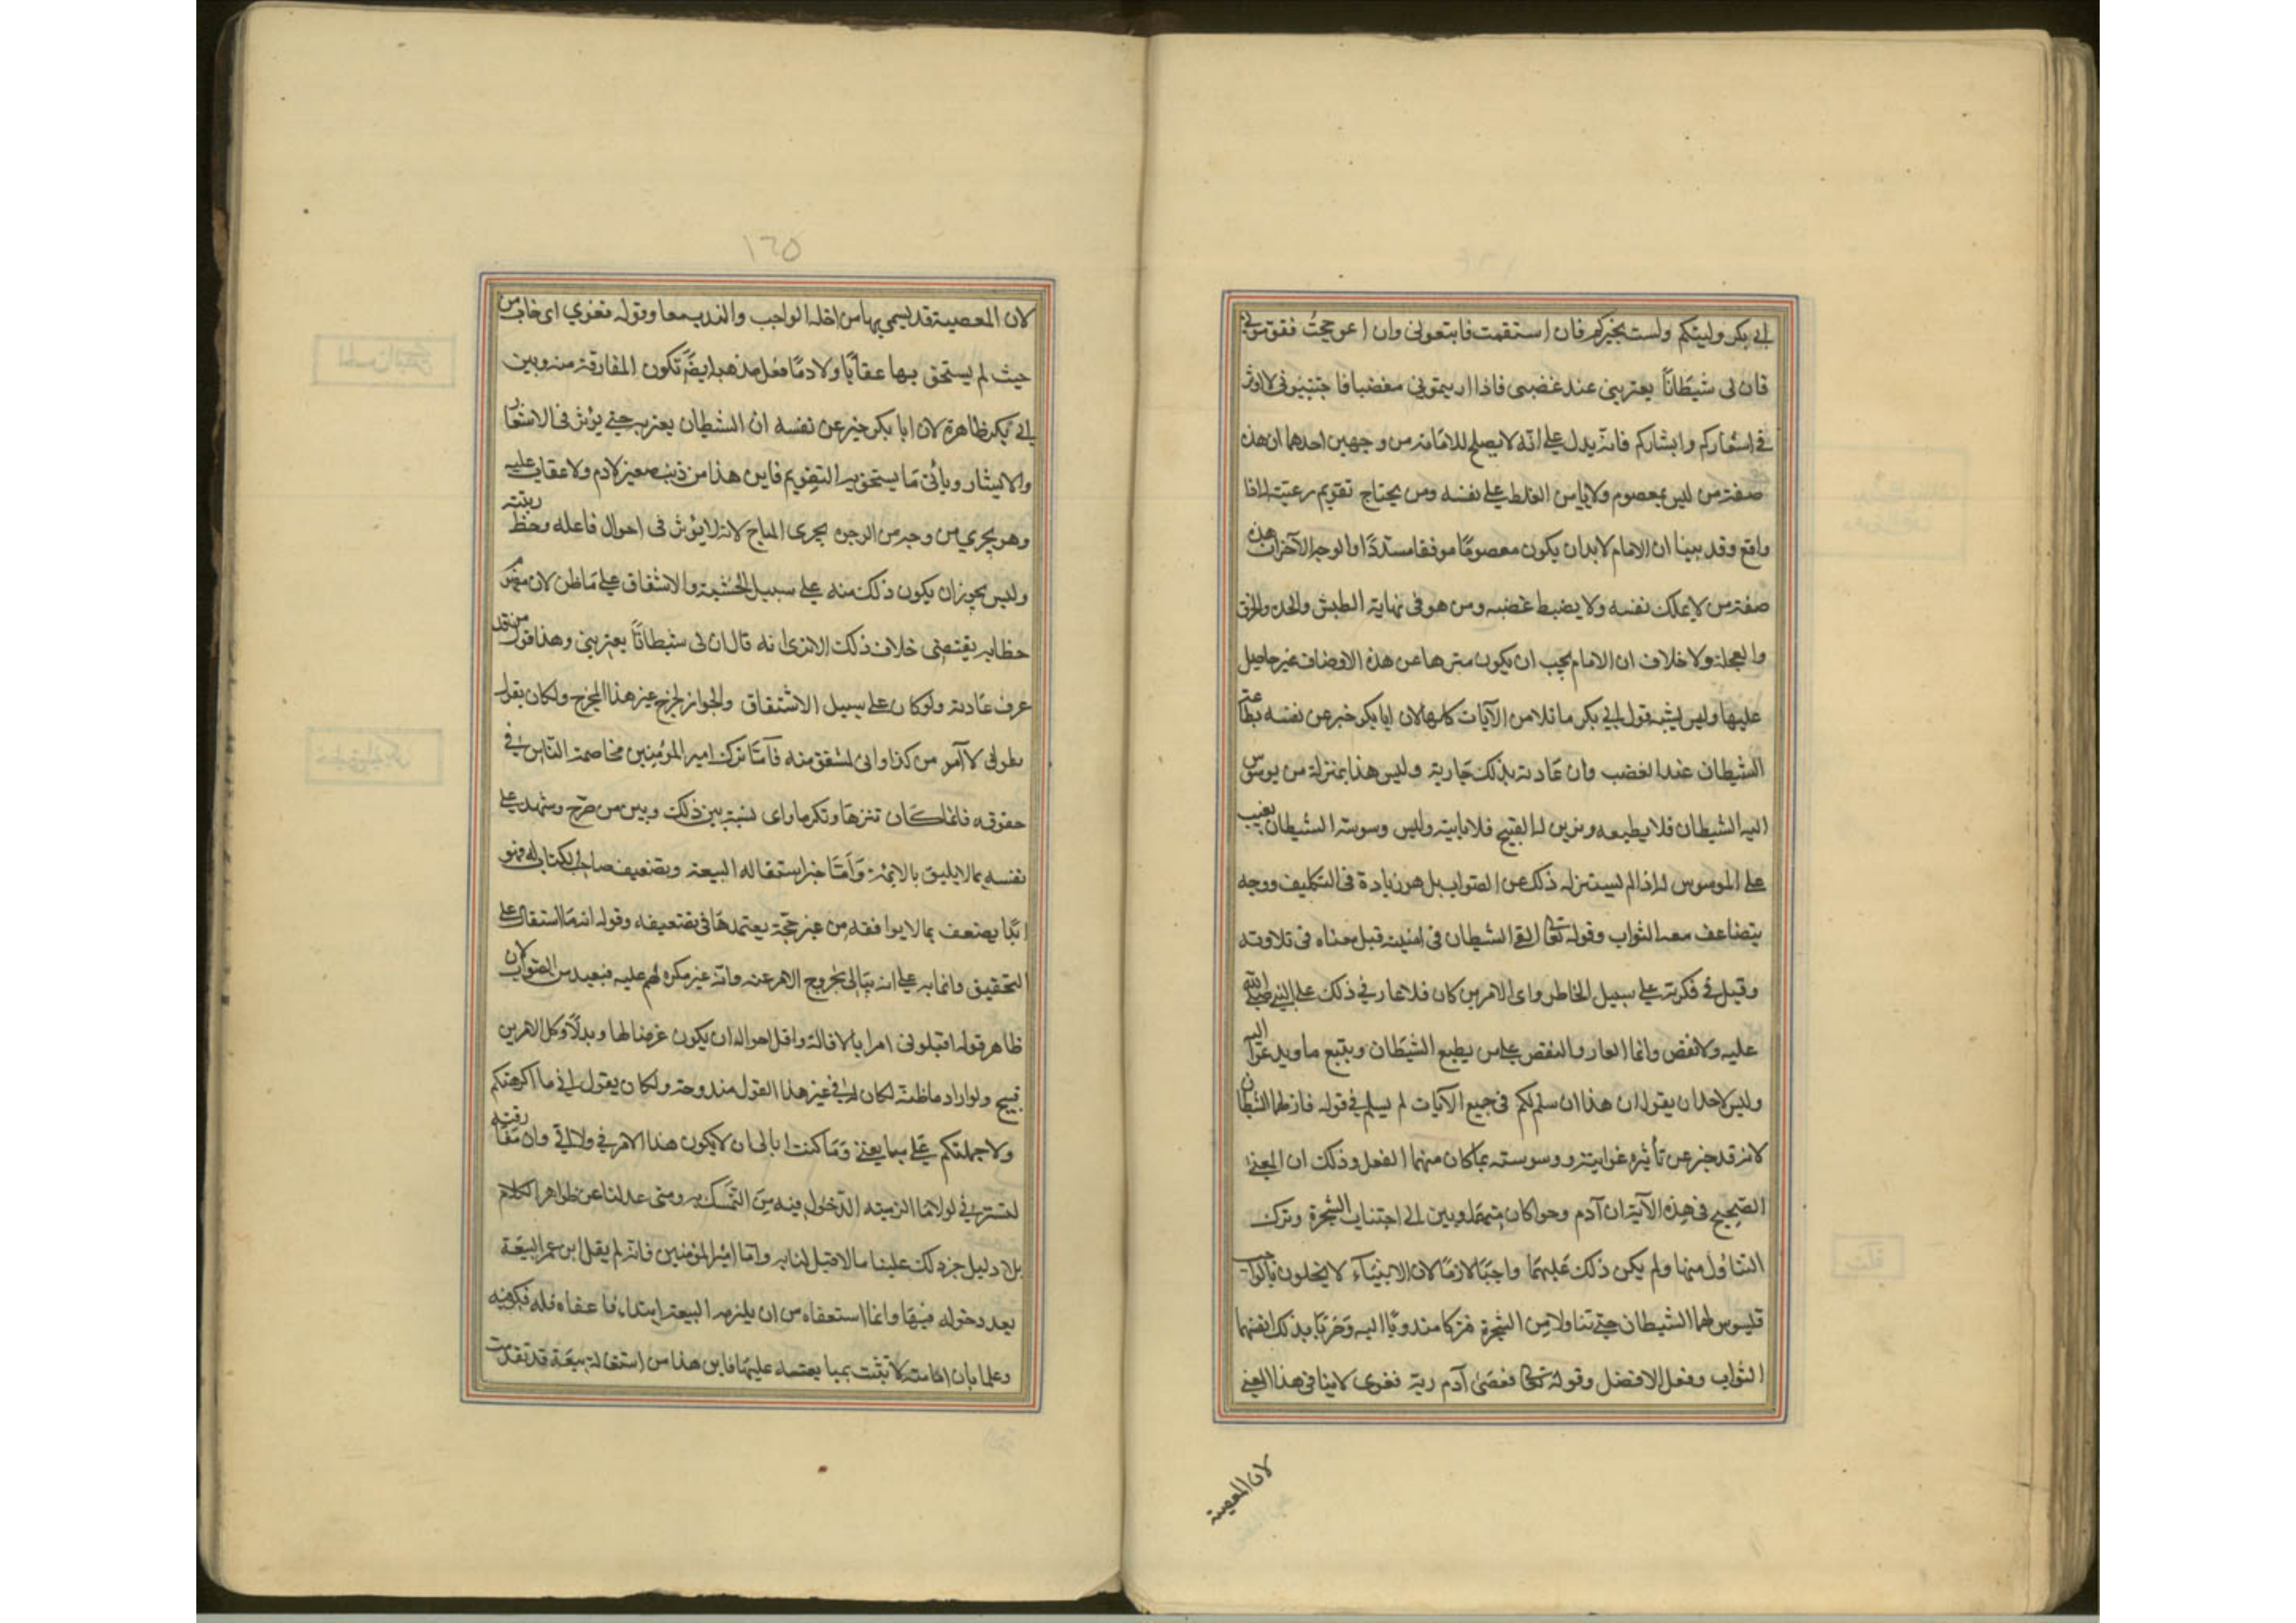 ابي بكر وليتكم ولست بخيركم فان استقمت فاتبعوني وان اعوججت فقوموني
فان لى شيطانًا يعتريني عند غضبى فاذا اريتموني مغضبا فاجتنبوني لا اوثر
في اشعاركم وابشاركم فانه يدل على انّه لا يصلح للامامة من وجهين احدهما ان هذه
صفة من ليس بمعصوم ولا يامن الغلط على نفسه ومن يحتاج تقويم رعيته له اذا
واقع وقد بينا ان الامام لابد ان يكون معصومًا موفقا مسددًا والوجه الآخر ان هذه
صفة من لا يملك نفسه ولا يضبط غضبه ومن هو في نهاية الطيش والحدة والخرق
والعجلة ولا خلاف ان الامام يجب ان يكون منزها عن هذه الاوصاف غير حاصل
عليها وليس يشبه قول ابي بكر ما تلا من الآيات كلها لان ابا بكر خبر عن نفسه بطاعة
الشيطان عند الغضب وان عادته بذلك جارية وليس هذا بمنزلة من يوسوس
اليه الشيطان فلا يطيعه ويزين له القبيح فلا يأتيه وليس وسوسة الشيطان بعيب
على الموسوس له اذا لم يستزله ذلك عن الصواب بل هو زيادة في التكليف ووجه
يتضاعف معه الثواب وقوله تعالى القى الشيطان في امنيته قيل معناه في تلاوته
وقيل في فكرته على سبيل الخاطر واى الامرين كان فلا عار في ذلك على النبي صلى الله
عليه ولا نقص وانما العار والنقص على من يطيع الشيطان ويتبع ما يدعو اليه
وليس لاحد ان يقول ان هذا ان سلم لكم في جميع الآيات لم يسلم في قوله فازلهما الشيطان
لانه قد خبر عن تأثير غوايته ووسوسته بما كان منهما الفعل وذلك ان المعنى
الصحيح في هذه الآية ان آدم وحوا كان مندوبين الى اجتناب الشجرة وترك
التناول منها ولم يكن ذلك عليهما واجبًا لازمًا لان الانبياء لا يخلون بالواجب
فوسوس لهما الشيطان حتى تناولا من الشجرة فتركا مندوبًا اليه وحرما بذلك انفسهما
الثواب وفعل الافضل وقوله تعالى فعصى آدم ربه فغوى لا ينافى هذا المعنى
لان المعصية
١٦٥
لان المعصية قد يسمى بها من اخل بالواجب والندب معا وقوله فغوي اى خاب من
حيث لم يستحق بها عقابًا ولا ذمًا فعلى مذهبه ايضًا تكون المفارقة منه وبين
ابي بكر ظاهرة لان ابا بكر خبر عن نفسه ان الشيطان يعتريه حتى يؤثر في الاشعار
والابشار ويأتى ما يستحق به التقويم فاين هذا من ذنب صغير لا ذم ولا عقاب عليه
وهو يجري من وجه من الوجوه مجرى المباح لانه لا يؤثر فى احوال فاعله وحط رتبته
وليس يجوز ان يكون ذلك منه على سبيل الخشية والاشفاق على ما ظن لان مفهوم
خطابه يقتضى خلاف ذلك الا ترى انه قال ان لى شيطانًا يعتريني وهذا قول من قد
عرف عادته ولو كان على سبيل الاشفاق والجواز لخرج غير هذا المخرج ولكان يقول
لا آمن من كذا وانى لمشفق منه فأمّا ترك امير المؤمنين مخاصمة الناس في
حقوقه فانما كان تنزها وتكرما واى نسبة بين ذلك وبين من صرّح وشهد على
نفسه بما لا يليق بالائمة وأمّا خبر استقالة البيعة وتضعيف صاحب الكتاب له فهو
ابدًا يضعف بما لا يوافقه من غير حجّة يعتمدها فى تضعيفه وقوله انه ما استقال على
التحقيق وانما نبه على انه يبالى بخروج الامر عنه وانه غير مكره لهم عليه فبعيد من الصواب لان
ظاهر قوله اقيلونى امر بالاقالة واقل احواله ان يكون عرضا لها وبذلًا وكل الامرين
قبيح ولو اراد ما ظنه لكان له في غير هذا القول مندوحة ولكان يقول انى ما اكرهتكم
ولا حملتكم على مبايعتي وما كنت ابالى ان لا يكون هذا الامر في ولا الىّ وان مفارقته
لتسرني لولا ما الزمنيه الدّخول فيه من التمسّك به ومتى عدلنا عن ظواهر الكلام
بلا دليل جر ذلك علينا ما لا قبل لنا به وامّا امير المؤمنين فانه لم يقل ابن عمر البيعة
بعد دخوله فيها وانما استعفاه من ان يلزمه البيعة ابتداء فاعفاه قلة فكر فيه
وعلما بان امامته لا تثبت بمبايعته عليها فاين هذا من استقالة بيعة قد تقدمت